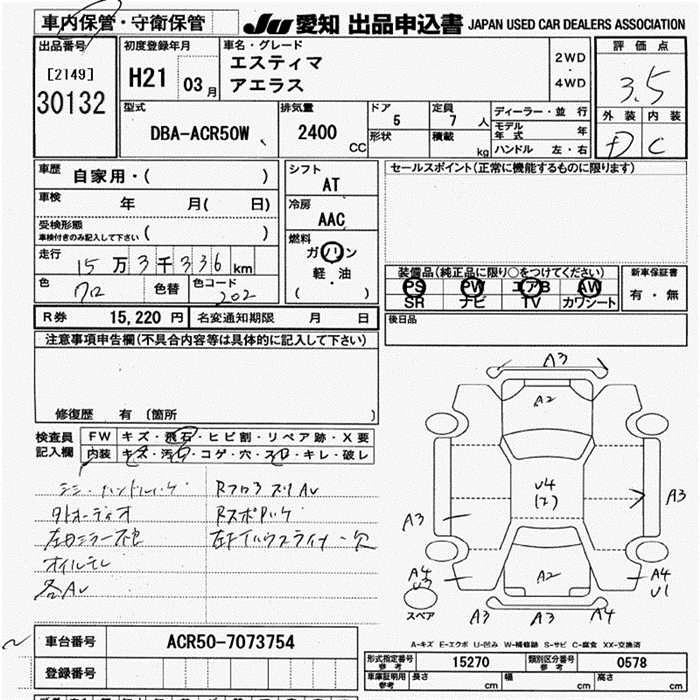 車内保管・守衛保管
JU 愛知 出品申込書 JAPAN USED CAR DEALERS ASSOCIATION
出品番号
[2149]
30132
初度登録年月
H21 03月
車名・グレード
エスティマ
アエラス
2WD
・
4WD
評価点
3.5
外装 内装
D C
型式
DBA-ACR50W
排気量
2400
CC
ドア
5
形状
定員
7人
積載
kg
ディーラー・並行
モデル年式 年
ハンドル 左・右
車歴 自家用・( )
車検 年 月( 日)
受検形態
車検付きのみ記入して下さい ( )
走行 15万3千336km
色 クロ 色替 色コード 202
シフト
AT
冷房
AAC
燃料
ガソリン
・
軽・油
( )
セールスポイント(正常に機能するものに限ります)
装備品(純正品に限り○をつけてください)
PS PW エアB AW
SR ナビ TV カワシート
新車保証書
有・無
後日品
R券 15,220円 名変通知期限 月 日
注意事項申告欄(不具合内容等は具体的に記入して下さい)
修復歴 有 〔箇所 〕
検査員
記入欄
FW キズ・飛石・ヒビ割・リペア跡・X要
内装 キズ・汚れ・コゲ・穴・スレ・キレ・破レ
外オーディオ
オイルモレ
各AU
A3
A2
U4
(2)
A3
A3
A4
A2
A4
U1
スペア
A3 A3 A4
A-キズ E-エクボ U-凹み W-補修跡 S-サビ C-腐食 XX-交換済
車台番号 ACR50-7073754
登録番号
形式指定番号
参考
15270
類別区分番号
参考
0578
車庫証明用
参考
長さ cm 幅 cm 高さ cm